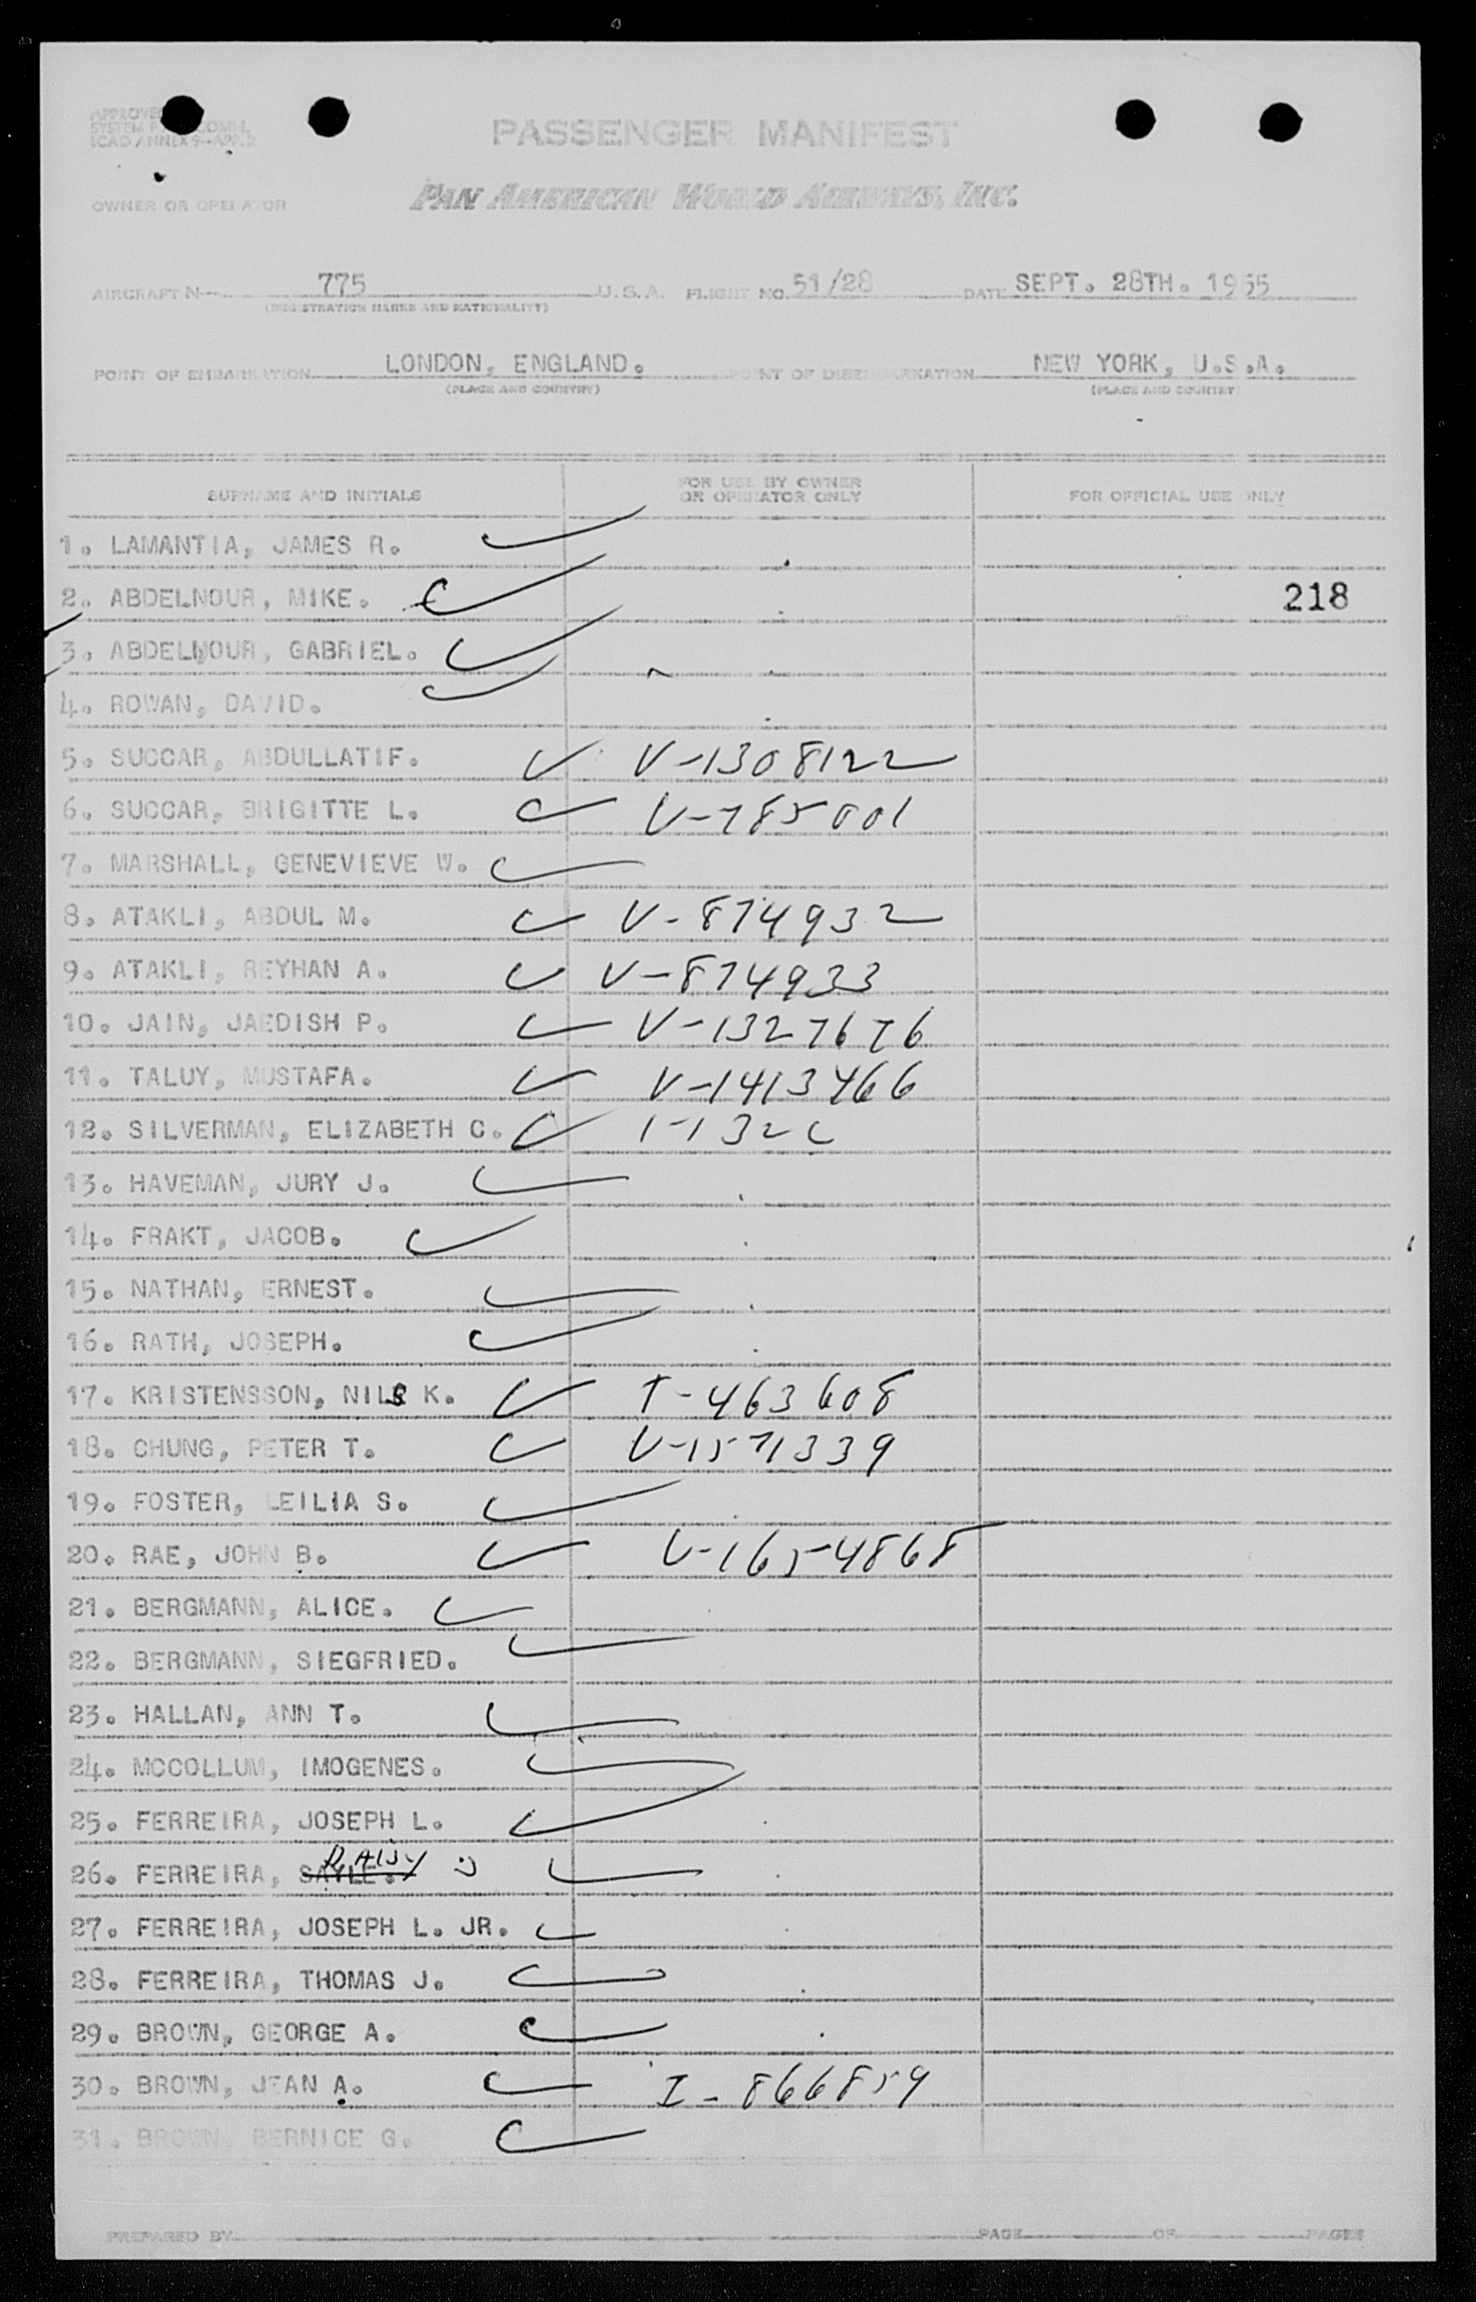 APPROVED
SYSTEM COMM.
ICAO ANNEX 9-APP.2
PASSENGER MANIFEST
OWNER OR OPERATOR PAN AMERICAN WORLD AIRWAYS, INC.
AIRCRAFT N- 775 U.S.A. FLIGHT NO. 51/28 DATE SEPT. 28TH. 1955
(REGISTRATION MARKS AND NATIONALITY)
POINT OF EMBARKATION LONDON, ENGLAND. POINT OF DISEMBARKATION NEW YORK, U.S.A.
(PLACE AND COUNTRY) (PLACE AND COUNTRY)
SURNAME AND INITIALS FOR USE BY OWNER OR OPERATOR ONLY FOR OFFICIAL USE ONLY
1. LAMANTIA, JAMES R.
2. ABDELNOUR, MIKE. 218
3. ABDELNOUR, GABRIEL.
4. ROWAN, DAVID.
5. SUCCAR, ABDULLATIF. V-1308122
6. SUCCAR, BRIGITTE L. V-785001
7. MARSHALL, GENEVIEVE W.
8. ATAKLI, ABDUL M. V-874932
9. ATAKLI, REYHAN A. V-874933
10. JAIN, JAEDISH P. V-1327676
11. TALUY, MUSTAFA. V-1413466
12. SILVERMAN, ELIZABETH C.
13. HAVEMAN, JURY J.
14. FRAKT, JACOB.
15. NATHAN, ERNEST.
16. RATH, JOSEPH.
17. KRISTENSSON, NILS K. T-463608
18. CHUNG, PETER T. V-1571339
19. FOSTER, LEILIA S.
20. RAE, JOHN B. V-1654868
21. BERGMANN, ALICE.
22. BERGMANN, SIEGFRIED.
23. HALLAN, ANN T.
24. MCCOLLUM, IMOGENES.
25. FERREIRA, JOSEPH L.
26. FERREIRA, DAISY
27. FERREIRA, JOSEPH L. JR.
28. FERREIRA, THOMAS J.
29. BROWN, GEORGE A.
30. BROWN, JEAN A. I-866859
31. BROWN, BERNICE G.
PREPARED BY PAGE OF PAGES